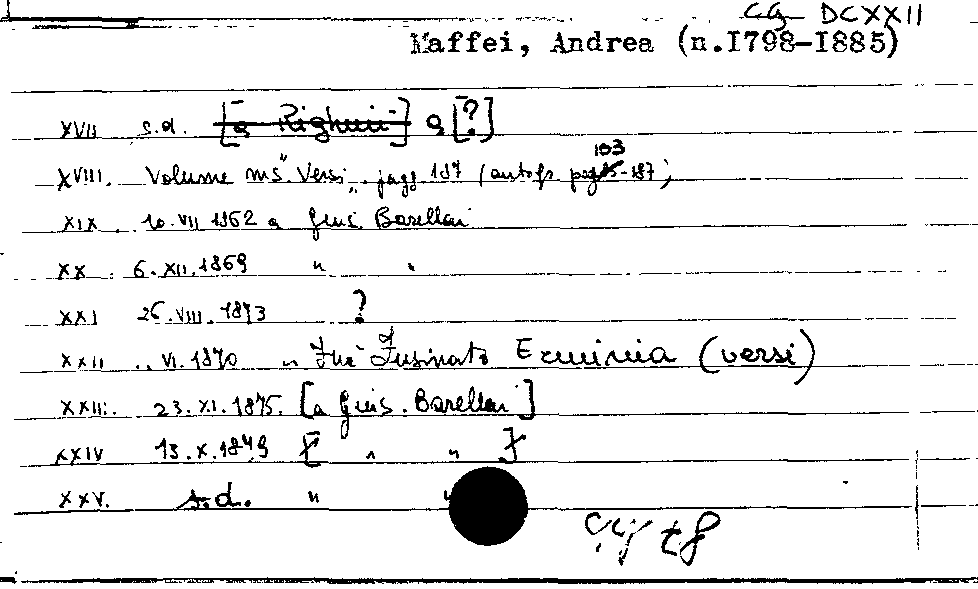 CG DCXXII
Maffei, Andrea (n.I798-I885)
XVII s.d. [a Righini] a [?]
XVIII. Volume ms. "Versi" pagg 187 (autogr. pag 183-187;
XIX. 10.VII 1862 a Gius. Barellai
XX. 6.XII.1869 " "
XXI 26.VIII.1873 ?
XXII .. VI.1870 " Fuà Fusinato Erminia (versi)
XXIII. 23.XI.1875. [a Gius. Barellai]
XXIV 13.X.1879 [ " " ]
XXV. s.d. " "